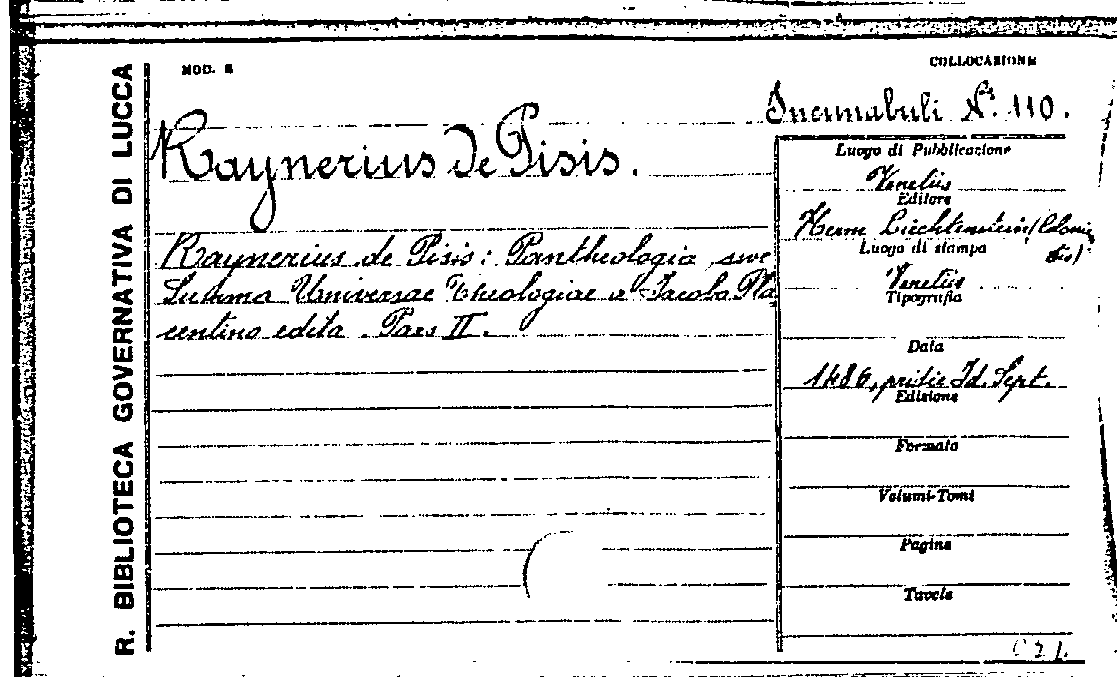 R. BIBLIOTECA GOVERNATIVA DI LUCCA
MOD. E
COLLOCAZIONE
Incunabuli N.º 110.
Raynerius de Pisis.
Raynerius de Pisis: Pantheologia, sive
Summa Universae Theologiae a Jacobo Pla
centino edita. Pars II.
Luogo di Pubblicazione
Venetiis
Editore
Herm Liechtenstein (Colonien
sis)
Luogo di stampa
Venetiis
Tipografia
Data
1486, pridie Id. Sept.
Edizione
Formato
Volumi-Tomi
Pagine
Tavole